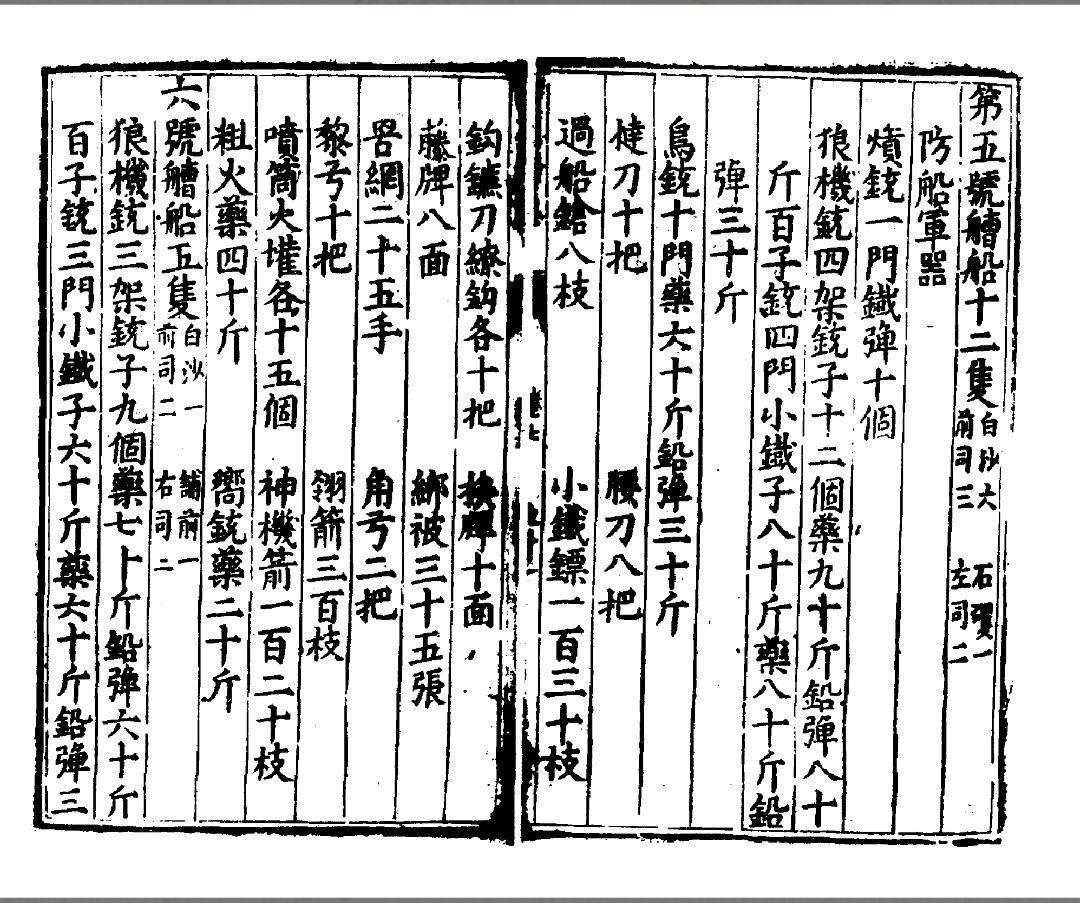 第五號艚船十二隻白沙大石礐一前司三左司二
防船軍器
熕銃一門鐵彈十個
狼機銃四架銃子十二個藥九十斤鉛彈八十
斤百子銃四門小鐵子八十斤藥八十斤鉛
彈三十斤
鳥銃十門藥六十斤鉛彈三十斤
㯓刀十把腰刀八把
過船鎗八枝小鐵鏢一百三十枝
鈎鐮刀繚鈎各十把挨牌十面
藤牌八面綁被三十五張
罟網二十五手角弓二把
黎弓十把翎箭三百枝
噴筒火罐各十五個神機箭一百二十枝
粗火藥四十斤嚮銃藥二十斤
六號艚船五隻白沙一舖前一前司二右司二
狼機銃三架銃子九個藥七十斤鉛彈六十斤
百子銃三門小鐵子六十斤藥六十斤鉛彈三